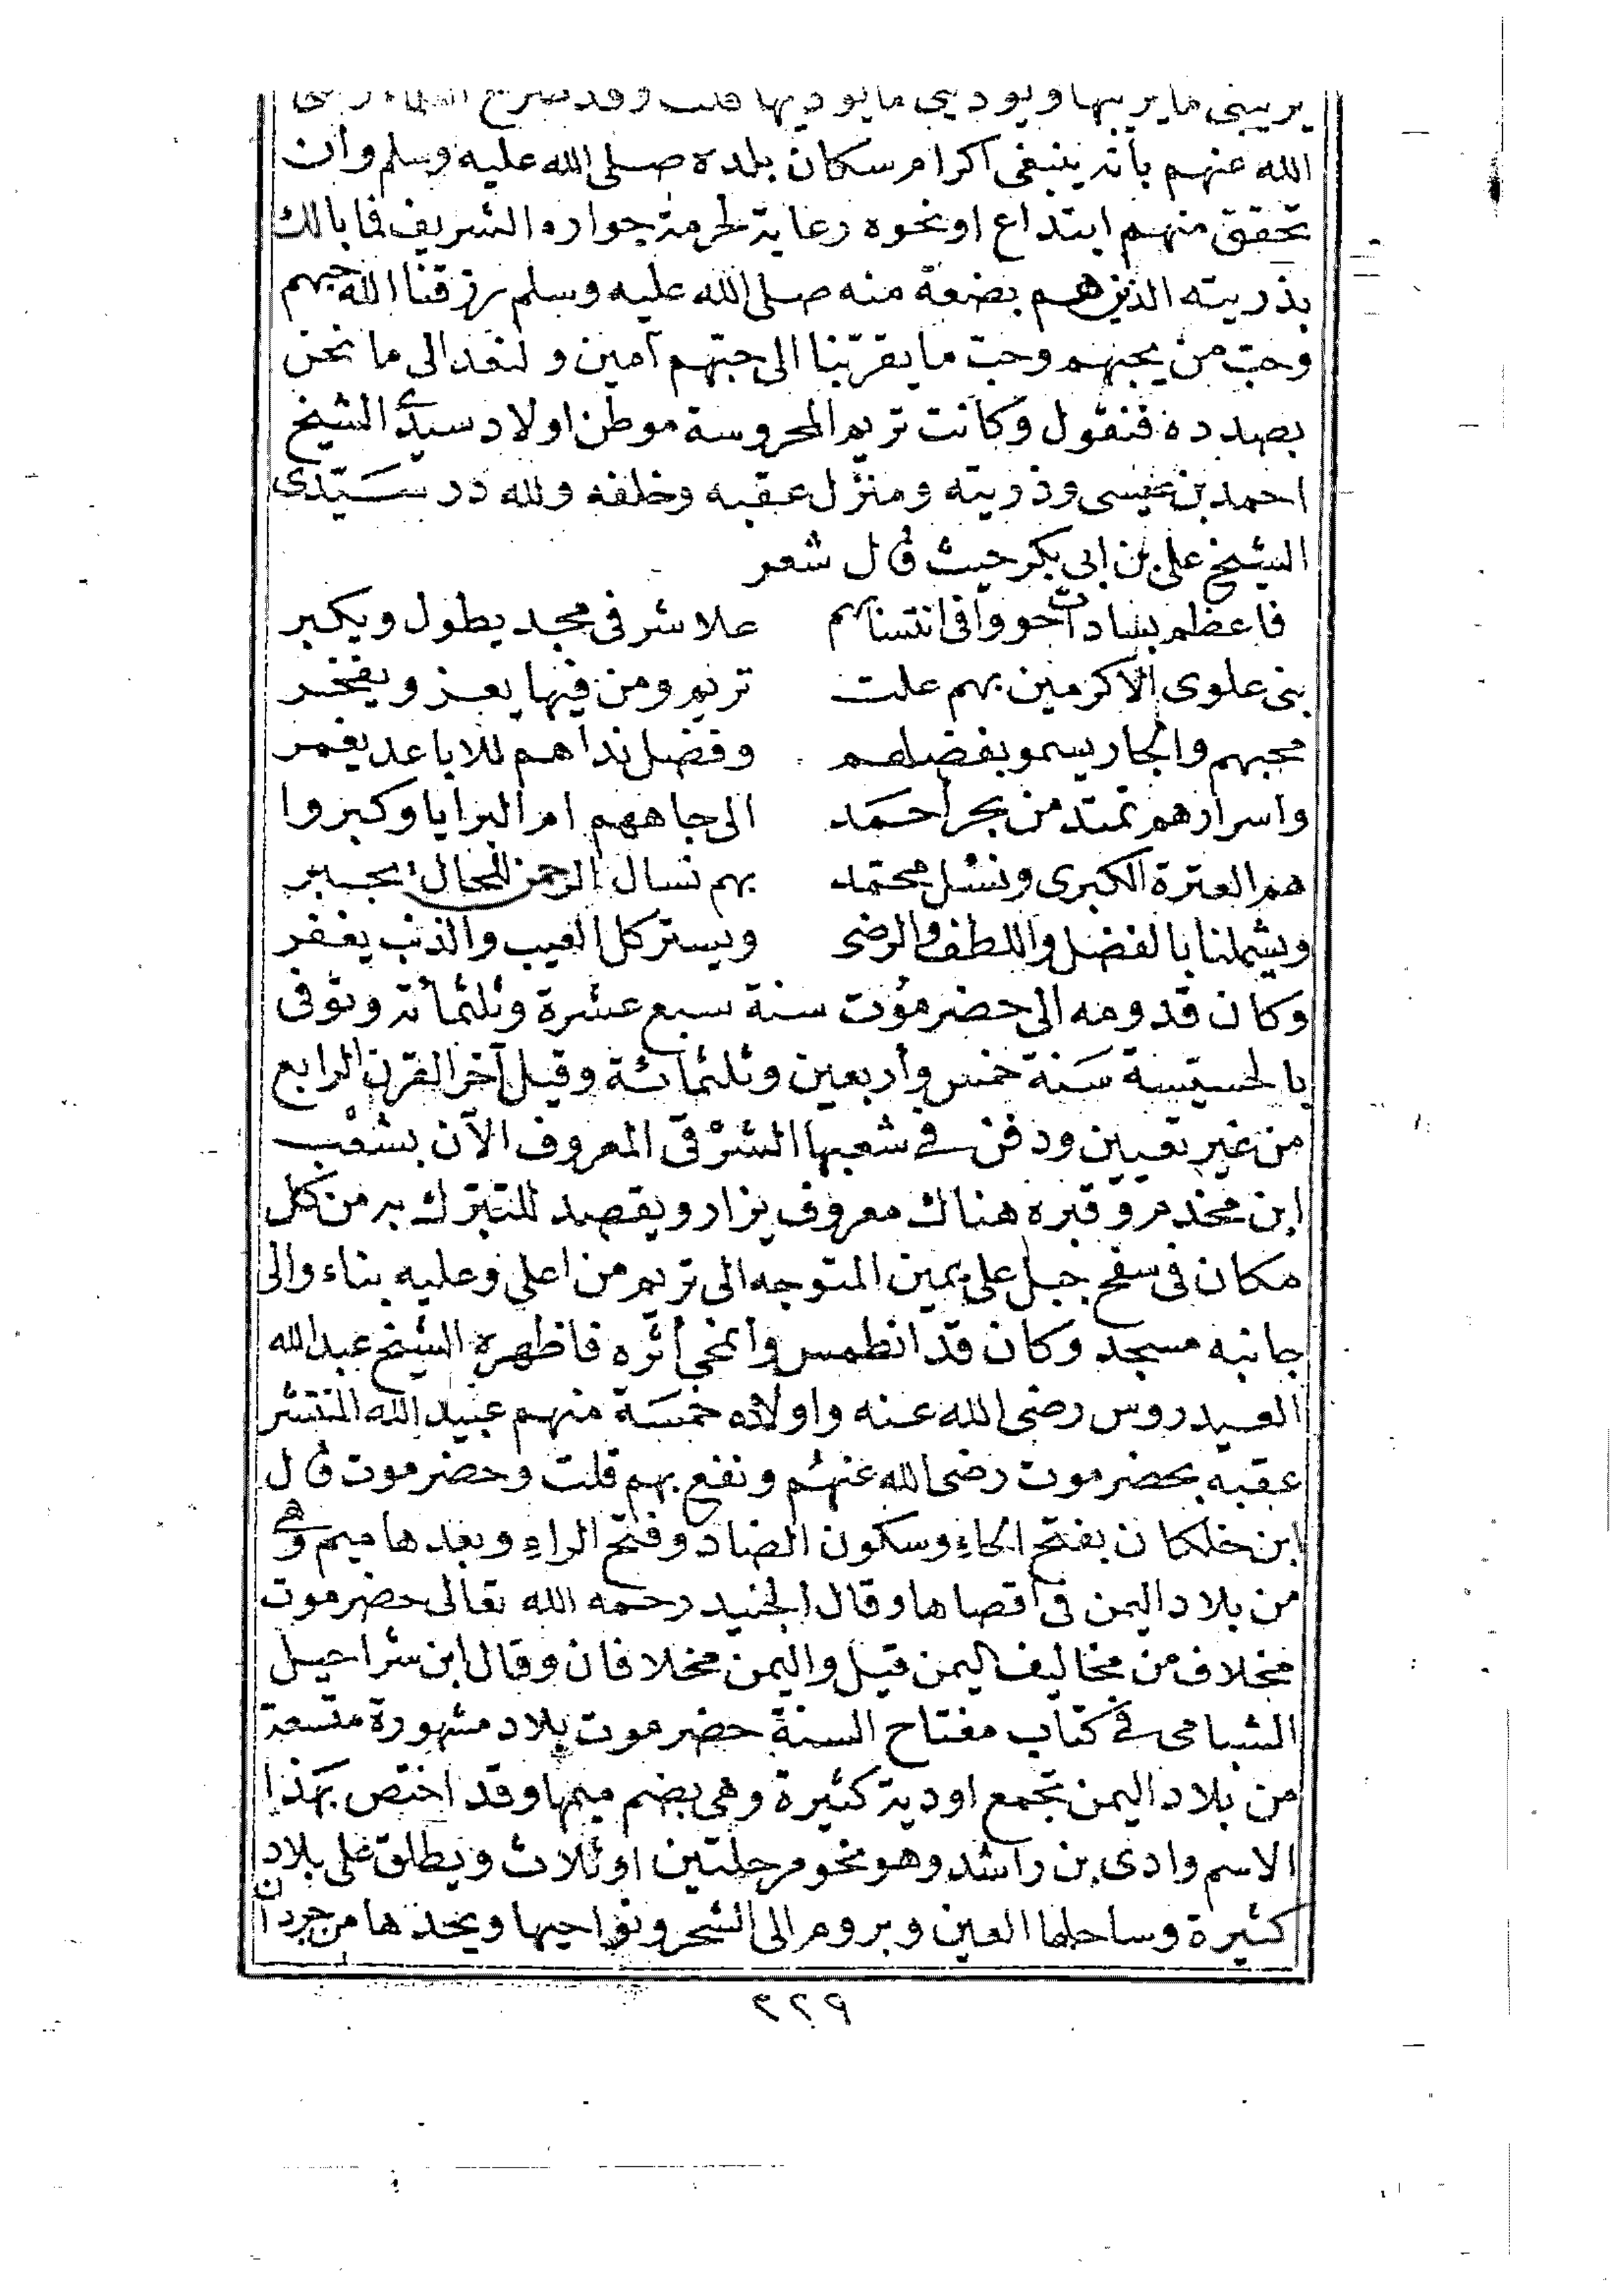 يريبني ما يريبها ويوديني ما يوديها قلت وقد صرح العلماء رضي
الله عنهم بأنه ينبغي اكرام سكان بلده صلى الله عليه وسلم وان
تحقق منهم ابتداع او نحوه رعاية لحرمة جواره الشريف فما بالك
بذريته الذين هم بضعة منه صلى الله عليه وسلم رزقنا الله حبهم
وحب من يحبهم وحب ما يقربنا الى حبهم آمين ولنعد الى ما نحن
بصدده فنقول وكانت تريم المحروسة موطن اولاد سيدي الشيخ
احمد بن عيسى وذريته ومنزل عقبه وخلفه ولله در سيدى
الشيخ على بن ابى بكر حيث قال شعر
فاعظم بسادات حووا في انتسابهم علا شرفى مجد يطول ويكبر
بنى علوى الأكرمين بهم علت تريم ومن فيها يعز ويفخر
محبهم والجار يسمو بفضلهم وفضل نداهم للاباعد يغمر
واسرارهم تمتد من بحر أحمد الى جاههم ام البرايا وكبروا
هم العترة الكبرى ونسل محمد بهم نسال الرحمن للحال يجبر
ويشملنا بالفضل واللطف والرضى ويستر كل العيب والذنب يغفر
وكان قدومه الى حضرموت سنة سبع عشرة وثلثمائة وتوفى
بالحسيسة سنة خمس وأربعين وثلثمائة وقيل آخر القرن الرابع
من غير تعيين ودفن في شعبها الشرقى المعروف الآن بشعب
ابن مخدم وقبره هناك معروف يزار ويقصد للتبرك به من كل
مكان فى سفح جبل على يمين المتوجه الى تريم من اعلى وعليه بناء والى
جانبه مسجد وكان قد انطمس وأمحى أثره فاظهره الشيخ عبد الله
العيدروس رضى الله عنه واولاده خمسة منهم عبيد الله المنتشر
عقبه بحضرموت رضى الله عنهم ونفع بهم قلت وحضرموت قال
ابن خلكان بفتح الحاء وسكون الضاد وفتح الراء وبعدها ميم وهي
من بلاد اليمن فى أقصاها وقال الجنيد رحمه الله تعالى حضرموت
مخلاف من مخاليف اليمن قيل واليمن مخلافان وقال ابن شراحيل
الشبامى في كتاب مفتاح السنة حضرموت بلاد مشهورة متسعة
من بلاد اليمن تجمع اودية كثيرة وهي بضم ميمها وقد اختص بهذا
الاسم وادى بن راشد وهو نحو مرحلتين او ثلاث ويطلق على بلاد
كثيرة وساحلها العين وبروم الى الشحر ونواحيها ويحدها من جردان
٣٢٩